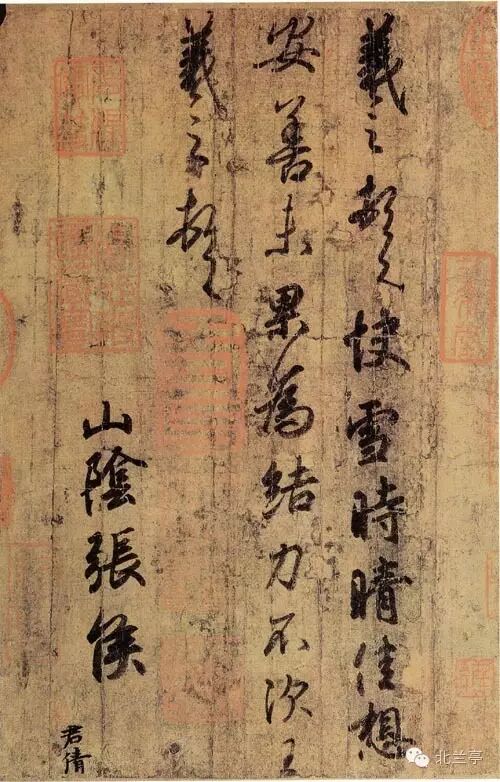 羲之頓首快雪時晴佳想
安善未果為結力不次王
羲之頓首
山陰張侯
君倩
北兰亭